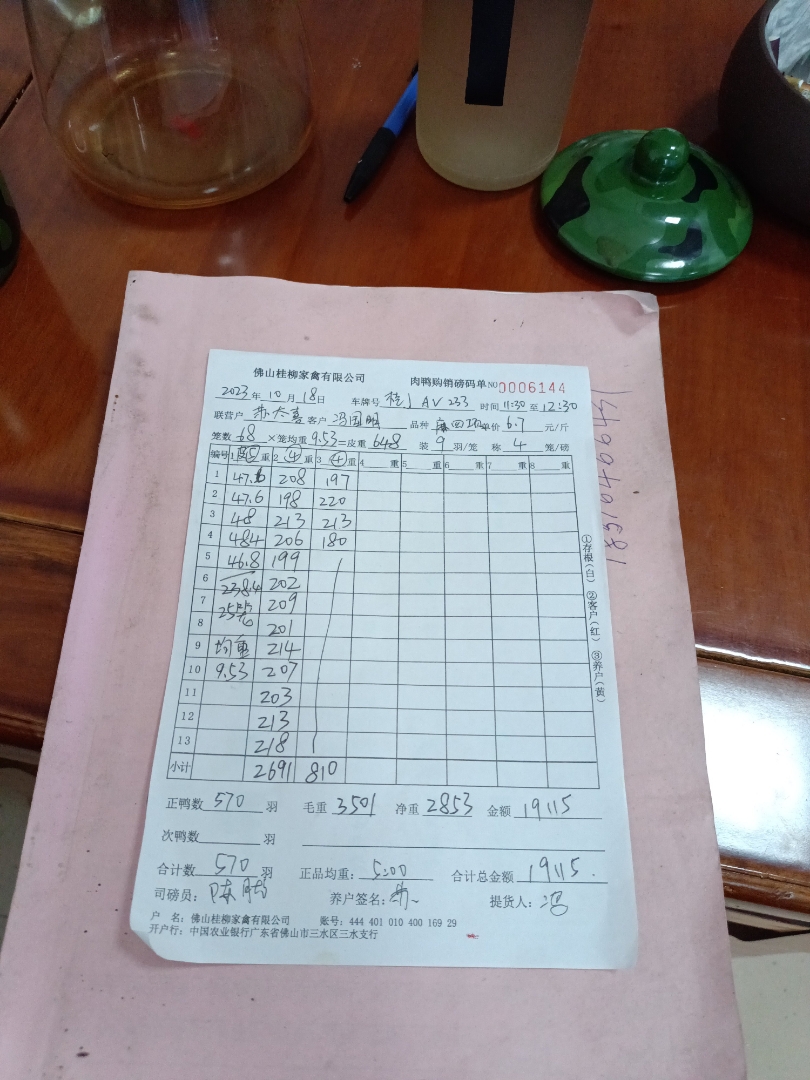 佛山桂柳家禽有限公司 肉鸭购销磅码单 NO 0006144
2023年10月18日 车牌号 桂J AV233 时间 11:30 至 12:30
联营户 客户 冯国明 品种 单价 6.7 元/斤
笼数 68 ×笼均重 9.53 =皮重 648 装 9 羽/笼 称 4 笼/磅
编号 1 重 2 ④ 重 3 ④ 重 4 重 5 重 6 重 7 重 8 重
1 47.6 208 197
2 47.6 198 220
3 48 213 213
4 48.4 206 180
5 46.8 199
6 238.4 202
7 209
8 201
9 均重 214
10 9.53 207
11 203
12 213
13 218
小计 2691 810
正鸭数 570 羽 毛重 3501 净重 2853 金额 19115
次鸭数 羽
合计数 570 羽 正品均重: 5.00 合计总金额 19115.
司磅员: 陈 养户签名: 提货人: 冯
户 名: 佛山桂柳家禽有限公司 账号: 444 401 010 400 169 29
开户行: 中国农业银行广东省佛山市三水区三水支行
①存根(白) ②客户(红) ③养户(黄)